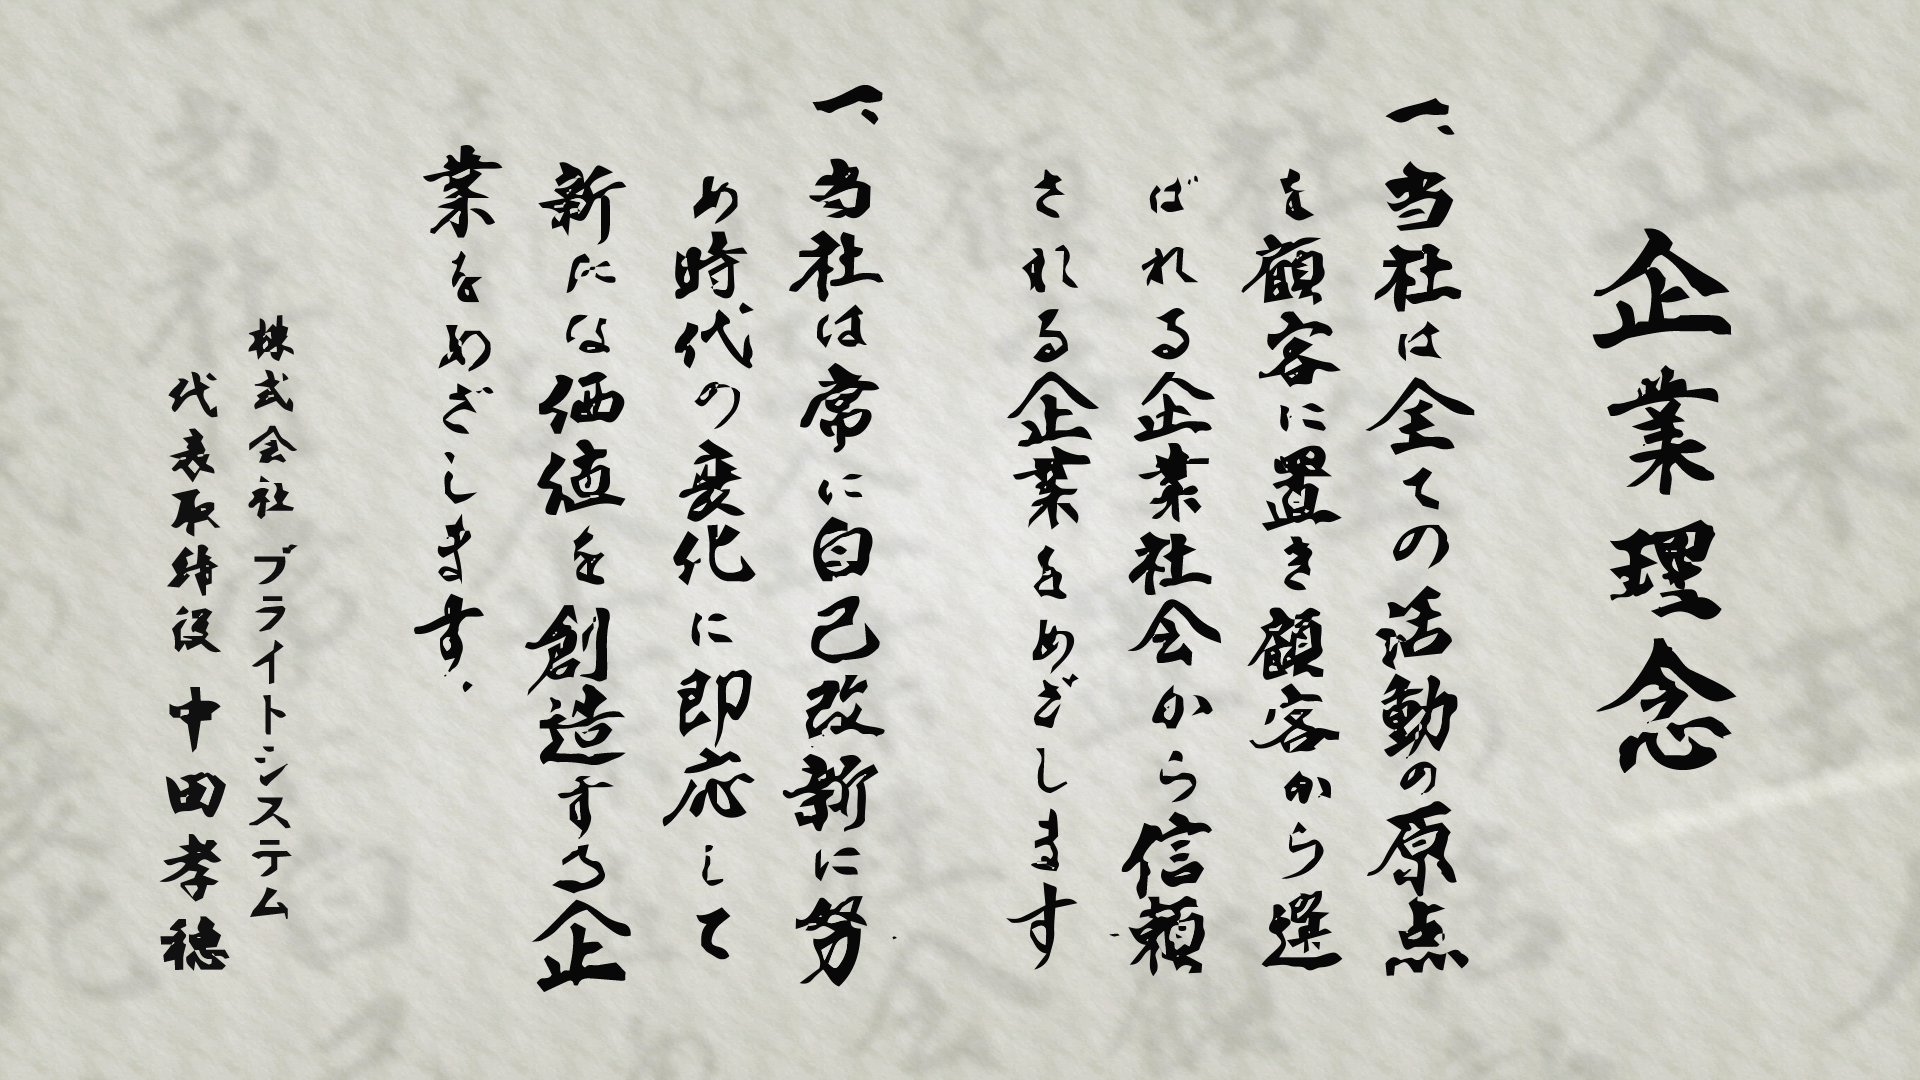 企業理念
一、当社は全ての活動の原点
を顧客に置き顧客から選
ばれる企業社会から信頼
される企業をめざします
一、当社は常に自己改新に努
め時代の変化に即応して
新たな価値を創造する企
業をめざします。
株式会社 ブライトシステム
代表取締役 中田孝穂